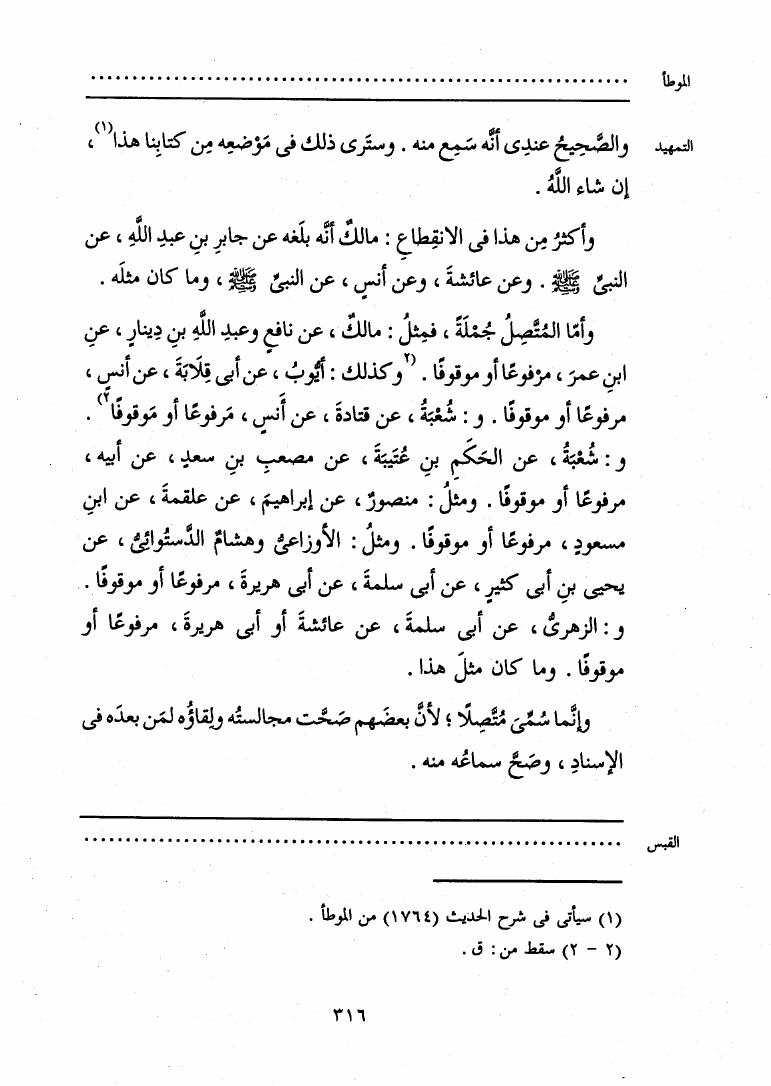 الموطأ ..........................................................
التمهيد والصَّحِيحُ عندِى أنَّه سَمِع منه . وستَرى ذلك فى مَوْضعِه مِن كتابِنا هذا(١) ،
إن شاء اللَّهُ .
وأكثرُ مِن هذا فى الانقِطاعِ : مالكٌ أنَّه بلَغه عن جابرِ بنِ عبدِ اللَّهِ ، عن
النبىِّ ﷺ . وعن عائشةَ ، وعن أنسٍ ، عن النبىِّ ﷺ ، وما كان مثلَه .
وأمَّا المُتَّصِلُ جُمْلَةً ، فمِثلُ : مالكٌ ، عن نافعٍ وعبدِ اللَّهِ بنِ دِينارٍ ، عن
ابنِ عمرَ ، مرْفوعًا أو موقوفًا . (٢وكذلك : أيُّوبُ ، عن أبى قِلَابَةَ ، عن أنسٍ ،
مرفوعًا أو موقوفًا . و : شُعْبَةُ ، عن قتادةَ ، عن أَنسٍ ، مَرفوعًا أو مَوقوفًا٢) .
و : شُعْبَةُ ، عن الحَكَمِ بنِ عُتَيبَةَ ، عن مصعبِ بنِ سعدٍ ، عن أبيه ،
مرفوعًا أو موقوفًا . ومثلُ : منصورٌ ، عن إبراهيمَ ، عن علقمةَ ، عن ابنِ
مسعودٍ ، مرفوعًا أو موقوفًا . ومثلُ : الأوزاعىُّ وهشامٌ الدَّستُوائِىُّ ، عن
يحيى بنِ أبى كثيرٍ ، عن أبى سلمةَ ، عن أبى هريرةَ ، مرفوعًا أو موقوفًا .
و : الزهرىُّ ، عن أبى سلمةَ ، عن عائشةَ أو أبى هريرةَ ، مرفوعًا أو
موقوفًا . وما كان مثلَ هذا .
وإنَّما سُمِّىَ مُتَّصِلًا ؛ لأنَّ بعضَهم صَحَّت مجالستُه ولِقاؤُه لمَن بعدَه فى
الإسنادِ ، وصَحَّ سماعُه منه .
القبس ..........................................................
(١) سيأتى فى شرح الحديث (١٧٦٤) من الموطأ .
(٢ - ٢) سقط من : ق .
٣١٦